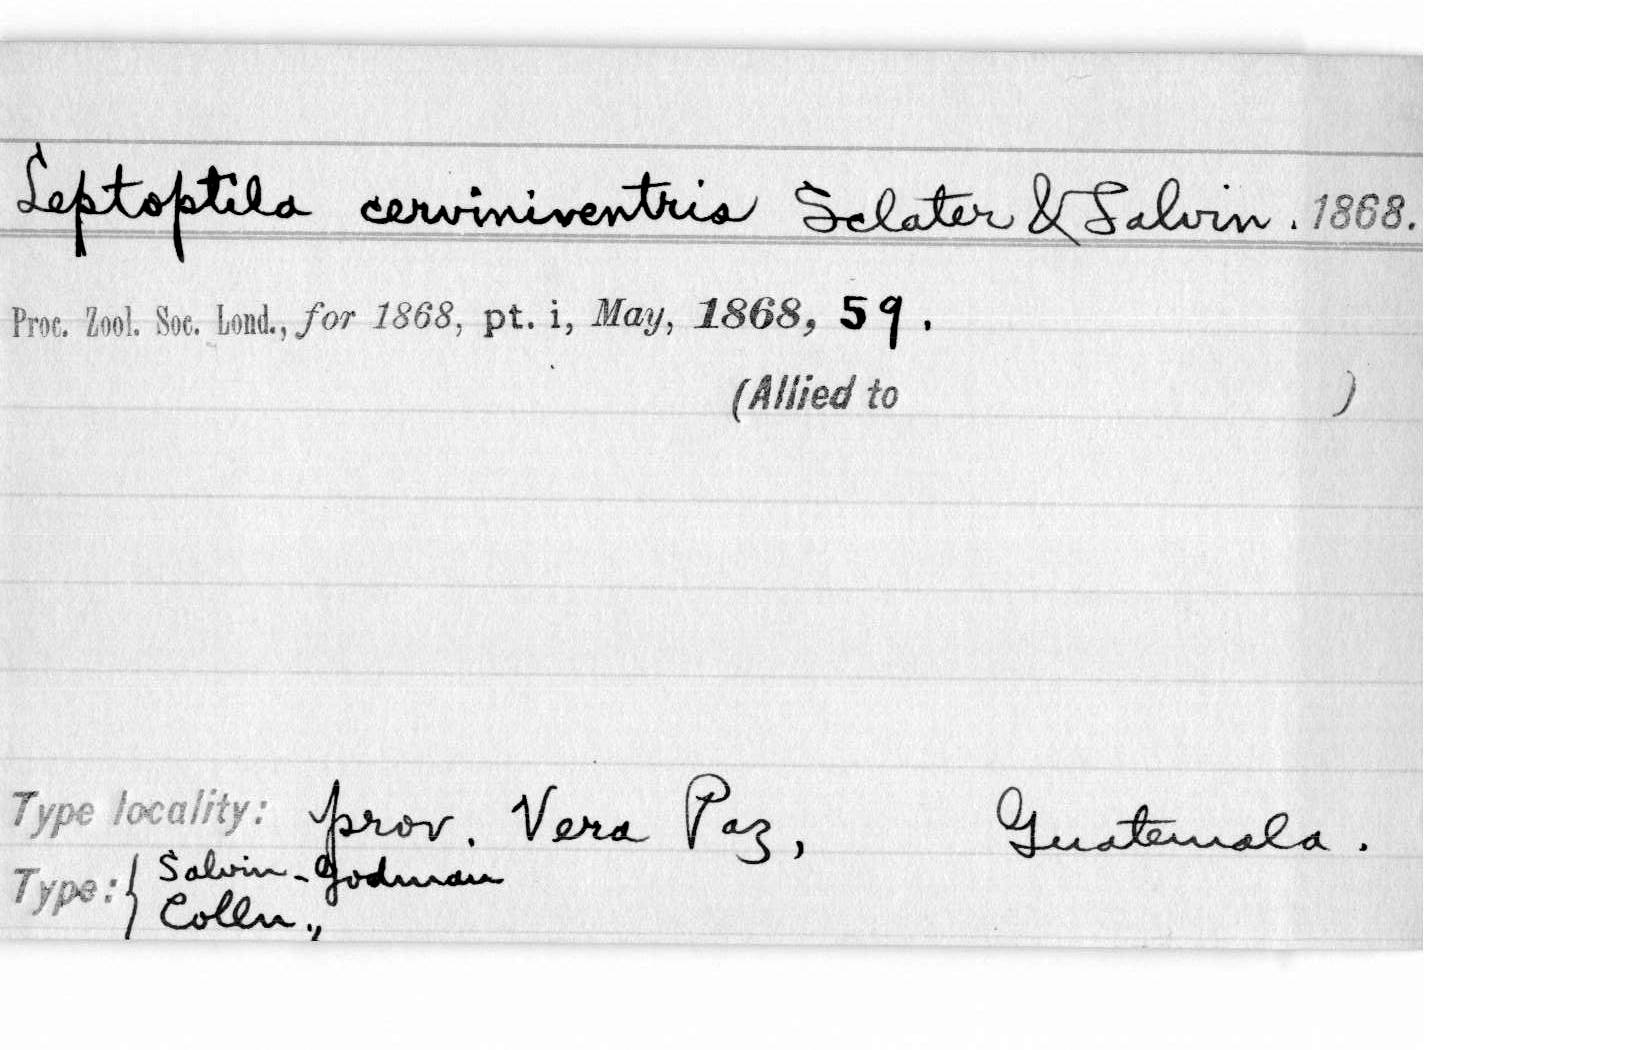 Leptoptila cerviniventris Sclater & Salvin . 1868.
Proc. Zool. Soc. Lond., for 1868, pt. i, May, 1868, 59 .
(Allied to )
Type locality: prov. Vera Paz, Guatemala .
Type: { Salvin-Godman
Colln .,